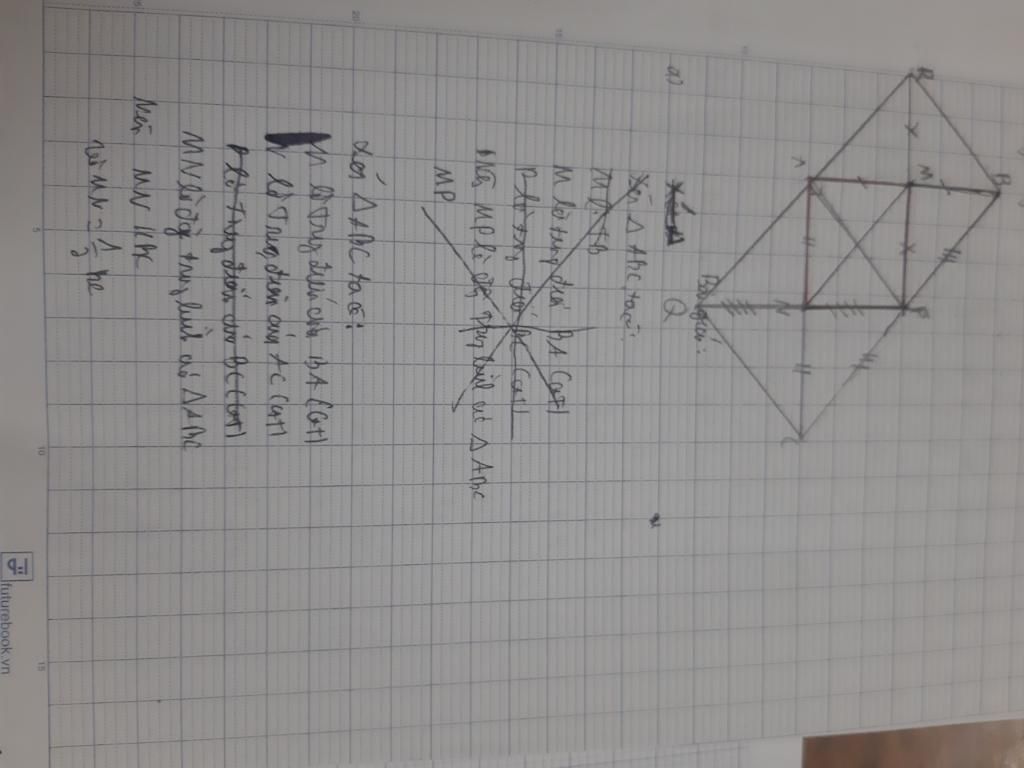 B
R
M
P
A
N
C
Q
Bài giải:
a)
Xét Δ ABC ta có:
M là trung điểm BA (GT)
P là trung điểm BC (GT)
Nên MP là đg trung bình của Δ ABC
MP
Xét Δ ABC ta có:
M là trung điểm của BA (GT)
N là trung điểm của AC (GT)
P là trung điểm của BC (GT)
MN là đg trung bình của Δ ABC
Nên MN // BC
Và MN = 1/2 BC
5
10
15
futurebook.vn